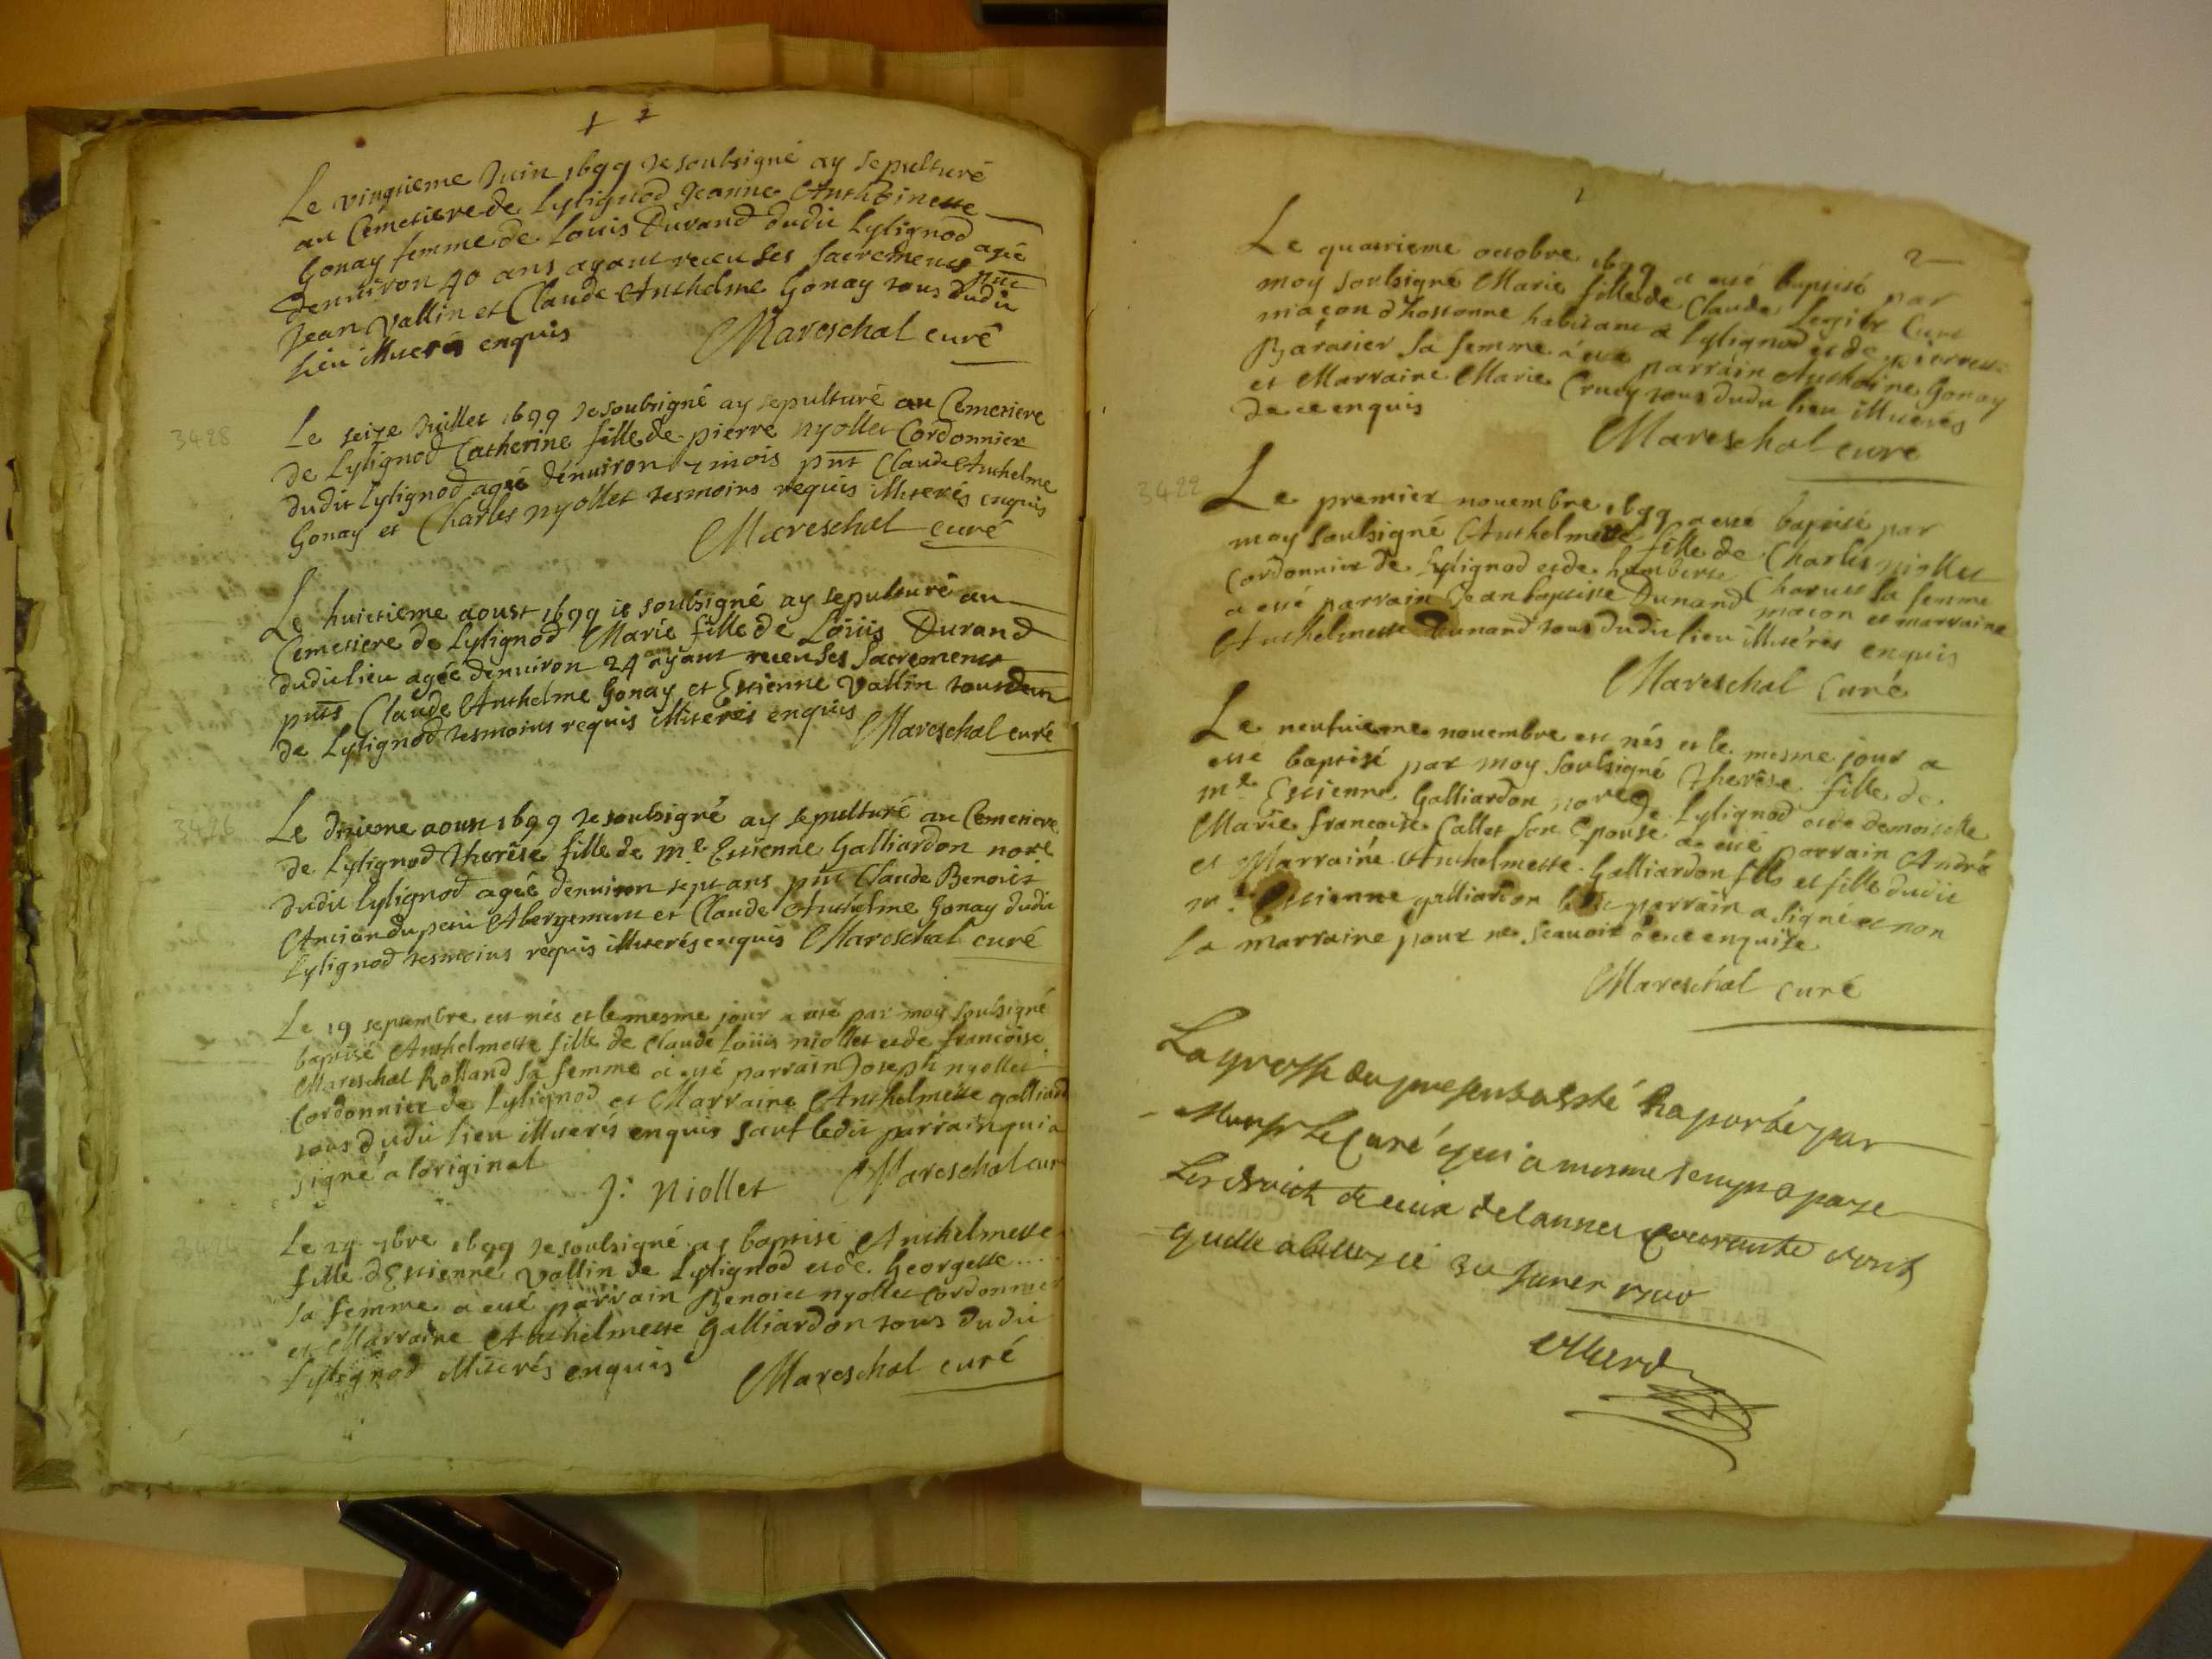 Le vingtieme Juin 1699 Je soubsigné ay sepulturé
au Cemetiere de Lylignod Jeanne Anthoinette
Gonay femme de Louis Durand dudit Lylignod agée
denuiron 40 ans ayant receu ses sacrements pnt
Jean Vallin et Claude Anthelme Gonay tous dudit
lieu illiterés enquis
Mareschal curé
3428
Le seize Juillet 1699 Je soubsigné ay sepulturé au Cemetiere
de Lylignod Catherine fille de pierre nyollet Cordonnier
dudit Lylignod agée denuiron 7 mois pnt Claude Anthelme
Gonay et Charles nyollet tesmoins requis illiterés enquis
Mareschal curé
Le huictieme aoust 1699 ie soubsigné ay sepulturé au
Cemetiere de Lylignod Marie fille de Loüis Durand
dudit lieu agée denuiron 24 ans ayant receu ses sacrements
pnts Claude Anthelme Gonay et Estienne Vallin tous deux
de Lylignod tesmoins requis illiterés enquis
Mareschal curé
3426
Le dixieme aoust 1699 Je soubsigné ay sepulturé au Cemetiere
de Lylignod Therèse fille de me Estienne Galliardon nore
dudit Lylignod agée denuiron sept ans pnt Claude Benoict
Ancian du petit Abergement et Claude Anthelme Gonay dudit
Lylignod tesmoins requis illiterés enquis Mareschal curé
Le 19 septembre est nés et le mesme jour a esté par moy soubsigné
baptisé Anthelmette fille de Claude Loüis niollet et de francoise
Mareschal Rolland sa femme a esté parrain Joseph nyollet
Cordonnier de Lylignod et Marraine Anthelmette galliard
tous dudit lieu illiterés enquis sauf ledit parrain qui a
signé a loriginal
J: Niollet Mareschal curé
3424
Le 29 7bre 1699 Je soubsigné ay baptisé Anthelmette
fille dEstienne Vallin de Lylignod et de Georgette ....
sa femme a esté parrain Benoict nyollet Cordonnier
et Marraine Anthelmette Galliardon tous dudit
Lylignod illiterés enquis
Mareschal curé
2
Le quatrieme octobre 1699 a esté baptisé par
moy soubsigné Marie fille de Claude
maçon dhostonne habitant a Lylignod et de pierrette
Baratier sa femme a esté parrain Anthoine Gonay
et Marraine Marie Cruey tous dudit lieu illiterés
de ce enquis
Mareschal curé
3422
Le premier novembre 1699 a esté baptisé par
moy soubsigné Anthelmette fille de Charles niollet
Cordonnier de Lylignod et de humberte sa femme
a esté parrain Jean baptiste Dunand maçon et marraine
Anthelmette Dunand tous dudit lieu illiterés enquis
Mareschal Curé
Le neufuieme novembre est nés et le mesme jour a
esté baptisé par moy soubsigné Therêse fille de
me Estienne Galliardon nore de Lylignod et de demoiselle
Marie francoise Callet son Epouse a esté parrain André
et Marraine Anthelmette Galliardon fils et fille dudit
me Estienne galliardon ledit parrain a signé et non
la marraine pour ne scauoir de ce enquise
Mareschal curé
La grosse du present a esté Raportée par
Monsr Le Curé qui a mesme temps a paye
Les droict de ceux de lannee courante dont
quitte a ce 30 Janer 1700